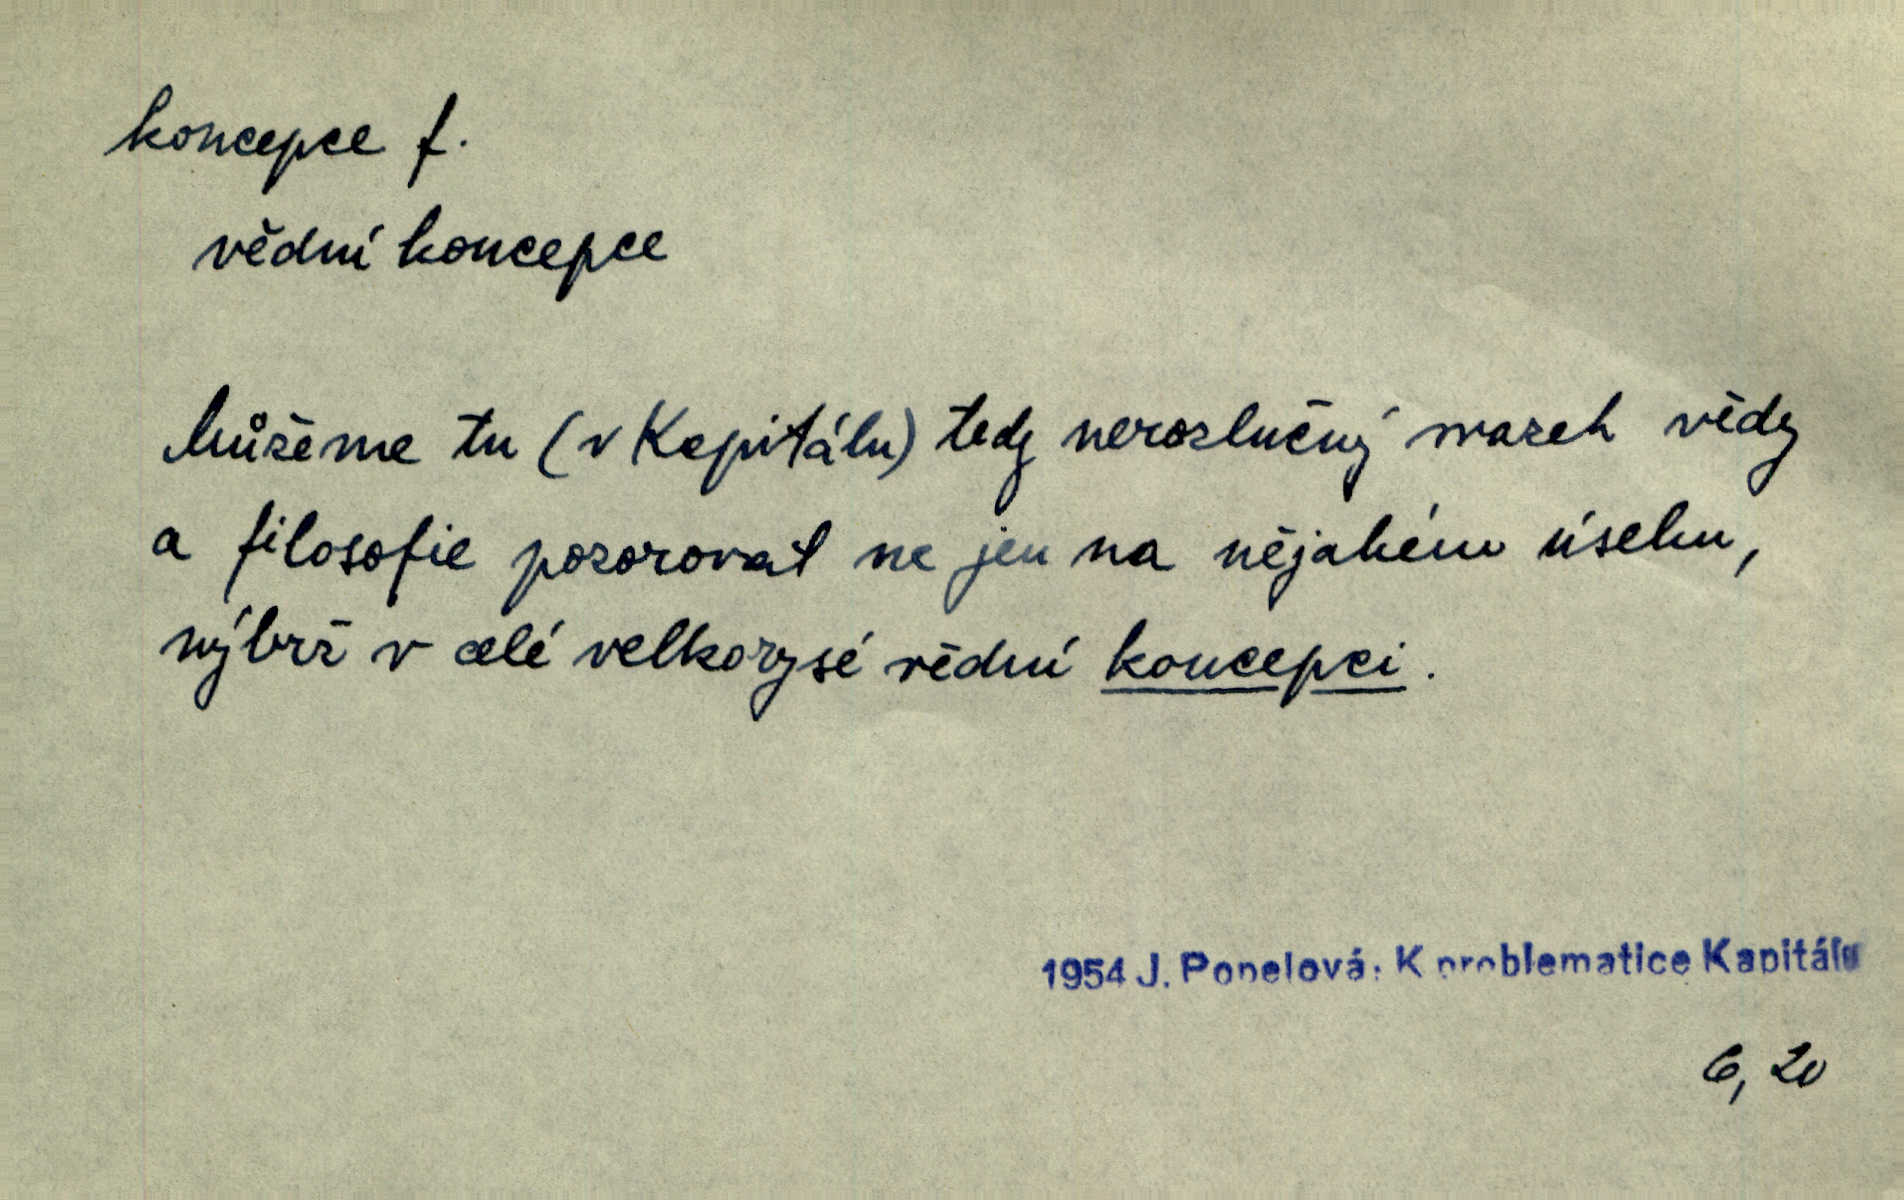 koncepce f.
vědní koncepce
Můžeme tu (v Kapitálu) tedy nerozlučný svazek vědy
a filosofie pozorovat ne jen na nějakém úseku,
nýbrž v celé velkorysé vědní koncepci.
1954 J. Popelová: K problematice Kapitálu
6, 20